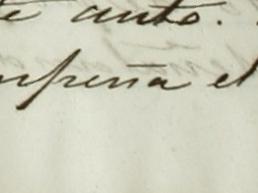 e auto.
mpeña el